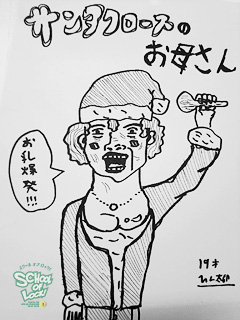 サンタクロースの
お母さん
お乳爆発!!!
19才
SCHOOL
OF
LOCK!